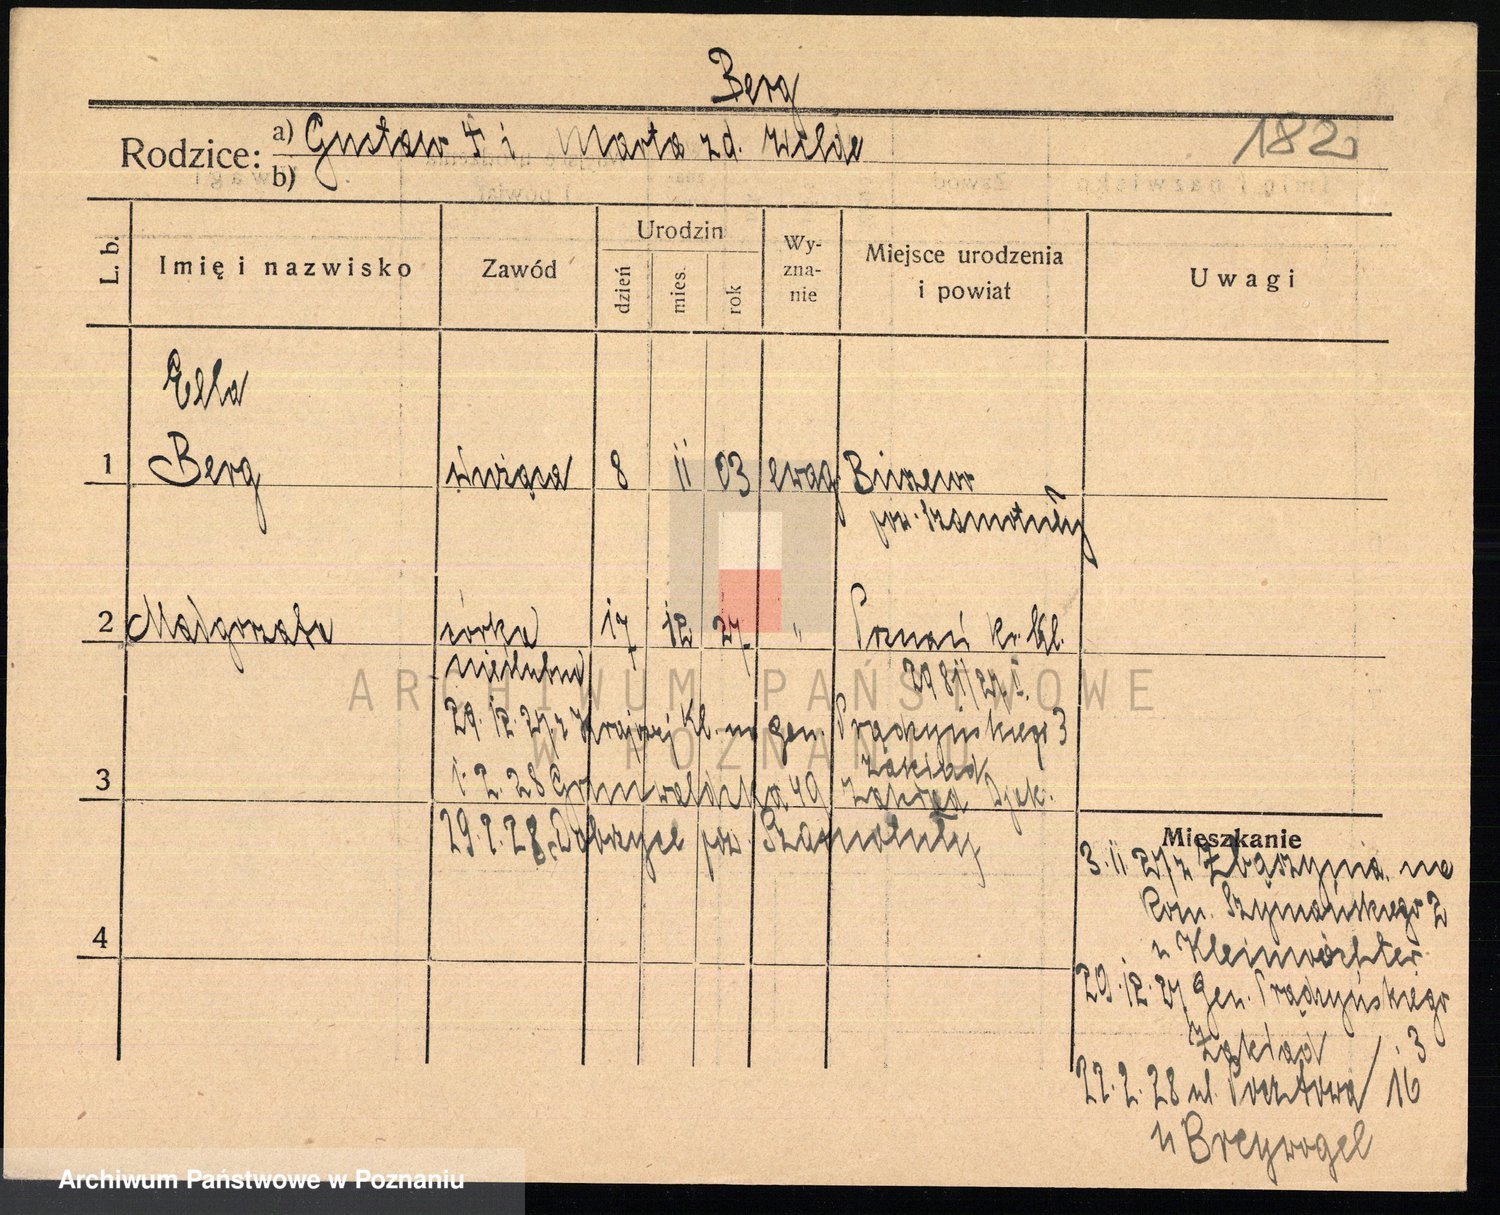 Berg
Rodzice: a) Gustaw i Marta zd. Wilde
b)
182
L. b.
Imię i nazwisko
Zawód
Urodzin
dzień
mies.
rok
Wy-
zna-
nie
Miejsce urodzenia
i powiat
Uwagi
Ella
1 Berg służąca 8 11 03 ewag Buszewo
pow. Szamotuły
2 Małgorzata córka 17 12 27 " Poznań kr. Kl.
nieślubna 2981/27 I.
29.12.27 z Krajowej Kl. na gen. Prądzyńskiego 3
zakład
3
1.2.28 Grunwaldzka 49 Zakład Djak.
29.2.28 Dobrzyce pow. Szamotuły
4
Mieszkanie
3.11 27 z Zbąszynia na
Kom. Szymańskiego 2
u Kleinwächter
29.12.27 Gen. Prądzyńskiego
Zakład 3
22.2.28 ul. Pocztowa 16
u Breyvogel
ARCHIWUM PAŃSTWOWE
W POZNANIU
Archiwum Państwowe w Poznaniu